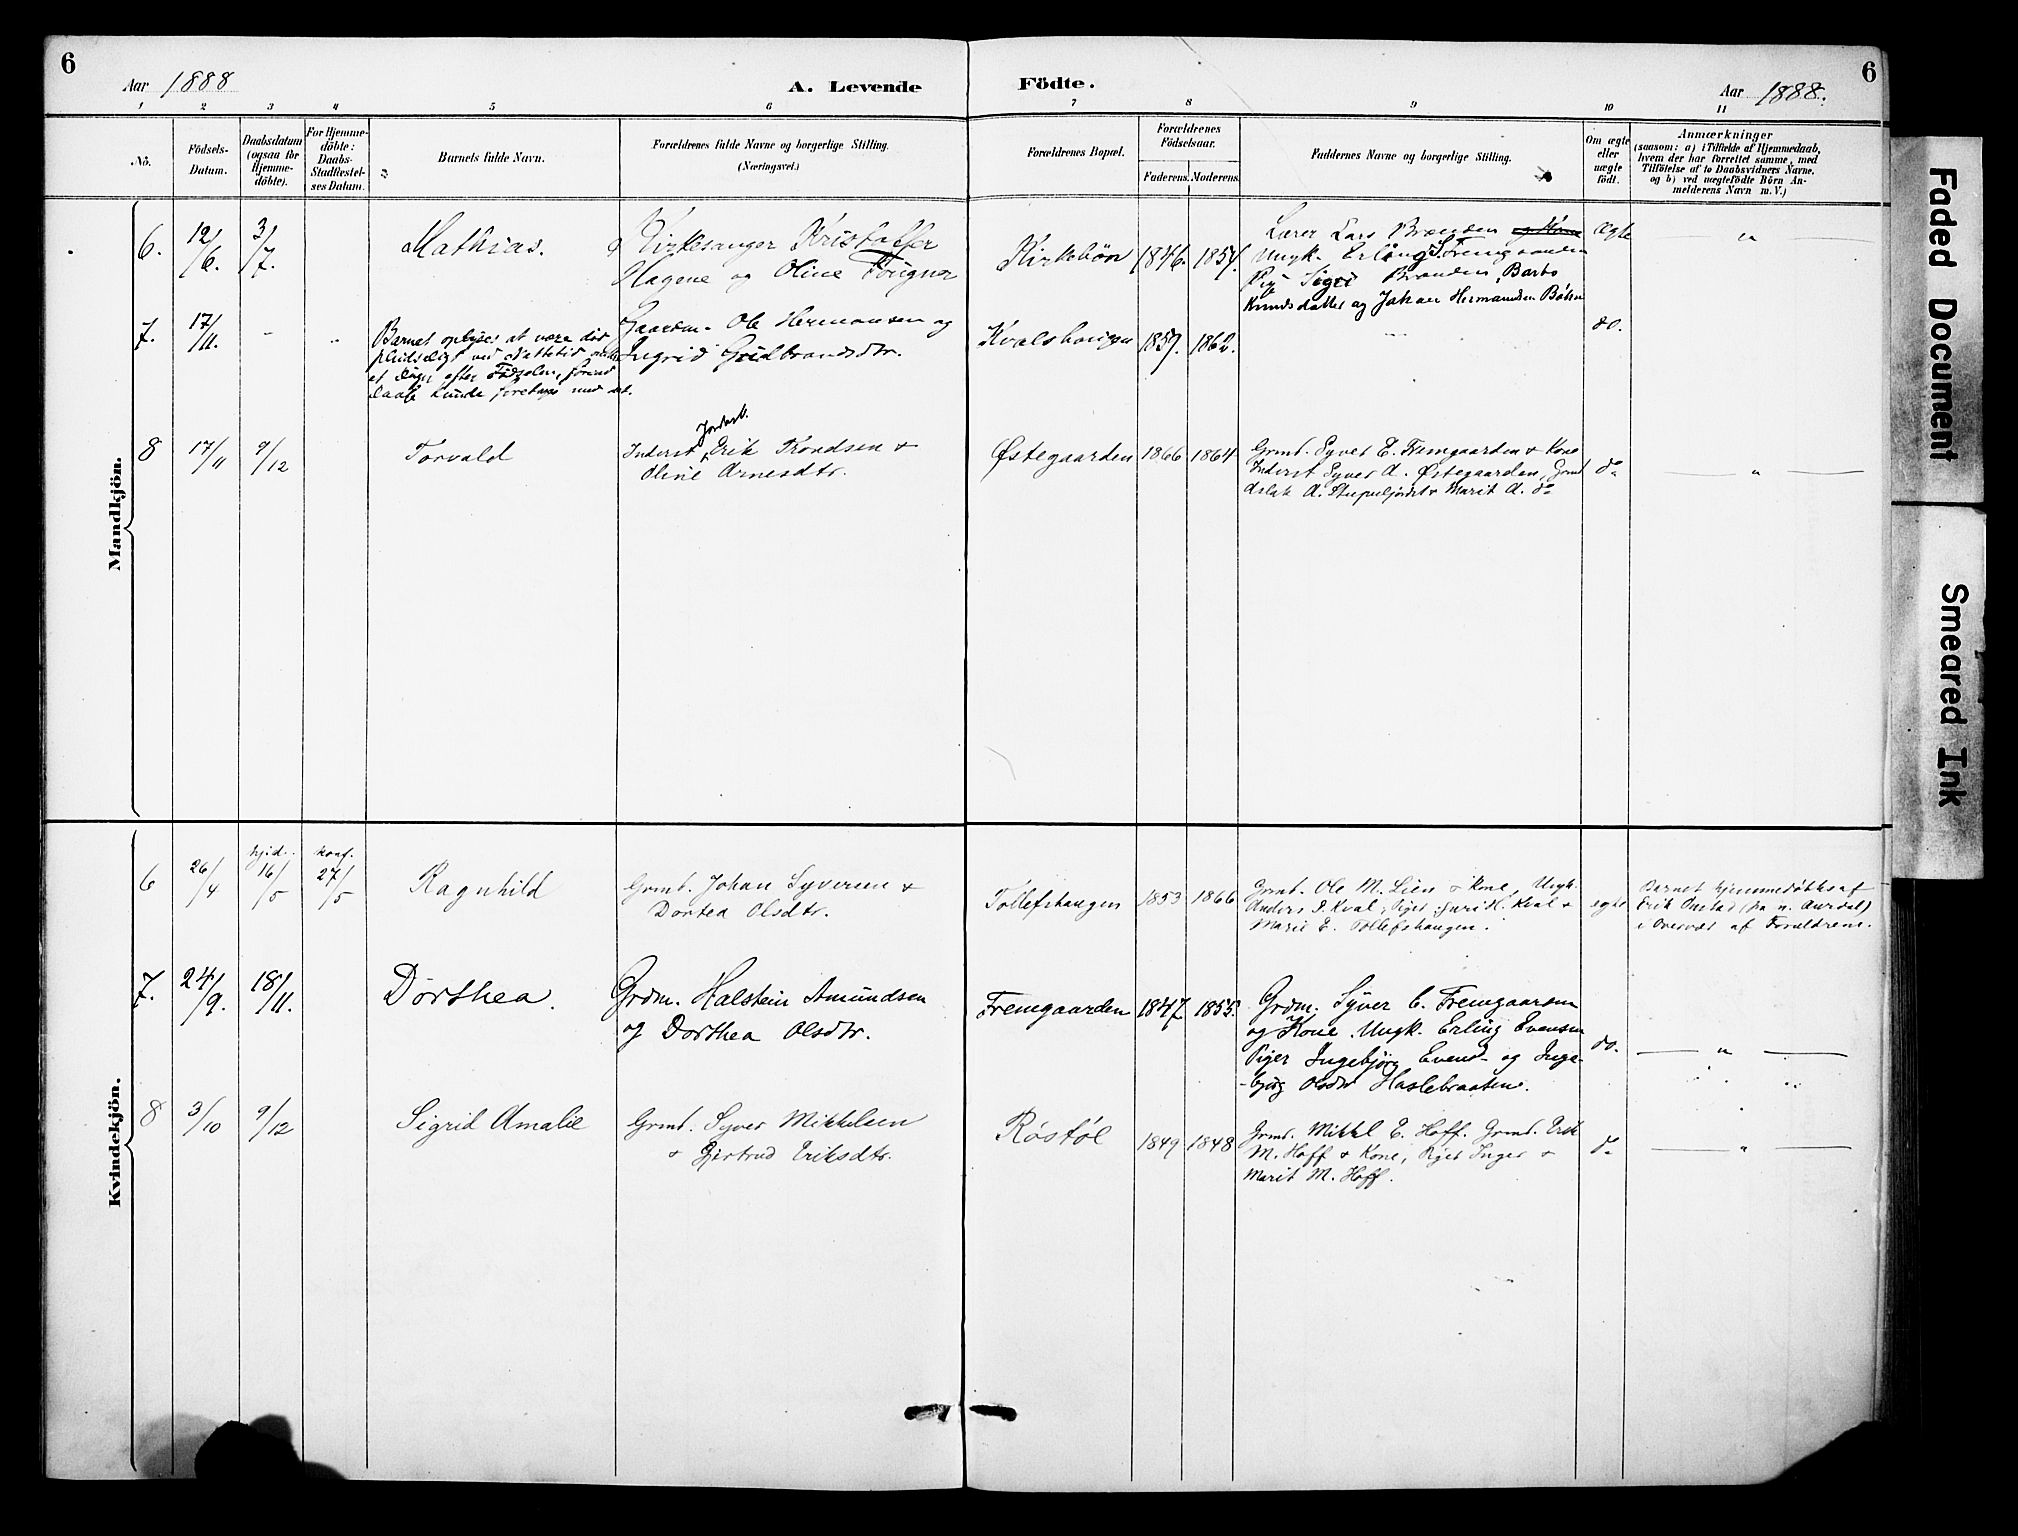 6
Aar 1888
A. Levende
Födte.
Aar 1888.
6
1 2 3 4 5 6 7 8 9 10 11
No.
Födsels-
Datum.
Daabsdatum
(ogsaa for
Hjemme-
döbte).
For Hjemme-
döbte:
Daabs-
Stadfæstel-
ses Datum.
Barnets fulde Navn.
Forældrenes fulde Navne og borgerlige Stilling.
(Næringsvei.)
Forældrenes Bopæl.
Forældrenes
Födselsaar.
Faderens. Moderens.
Faddernes Navne og borgerlige Stilling.
Om ægte
eller
uægte
födt.
Anmærkninger
(saasom: a) i Tilfælde af Hjemmedaab,
hvem der har forrettet samme, med
Tilföielse af to Daabsvidners Navne,
og b) ved uægtefödte Börn An-
melderens Navn m. V.)
Mandkjön.
6. 12/6. 3/7. Mathias.
Kirkesanger Kristoffer
Hagene og Oline Fougner
Kirkebön 1846. 1854.
Lærer Lars Brænden og Kone
Ungk. Erling S. Fremgaarden
Pig Sigri Brænden, Barbo
Knudsdatter og Johan Hermandsen Böhn
Ægte
— " —
7. 17/11. - "
Barnet oplyses at være död
pludseligt ved Nattetid
et Døgn efter Födselen, forend
Daab kunde foretages med det.
Gaardm. Ole Hermansen og
Ingrid Gudbrandsdtr.
Kvalshaugen 1859. 1862.
do.
8 17/11 9/12 Torvald
Jordarb.
Inderst Erik Trondsen +
Oline Arnesdtr.
Østegaarden 1866 1864
Grmd. Syver E. Fremgaarden + Kone
Inderst Syver A. Østegaarden, Grmd
Aslak A. Stupuljordet + Marit A. do
do
— " —
Kvindekjön.
6 26/4 hjd. 16/5 konf. 27/5 Ragnhild
Grmd. Johan Syversen +
Dortea Olsdtr.
Tollefshaugen 1853 1866
Grmd. Ole M. Lien + Kone, Ungk.
Anders P. Kval, Piger Guri H. Kval +
Marie E. Tollefshaugen.
egte
Barnet hjemmedøbtes af
Erik Onstad (fra n. Aurdal)
i Overvær af Forældrene.
7. 24/9. 18/11. Dorthea.
Grdm. Halstein Amundsen
og Dorthea Olsdtr.
Fremgaarden 1847 1855.
Grdm. Syver E. Fremgaarden
og Kone. Ungk. Erling Evensen
Piger Ingebjörg Evens- og Inge-
-björg Olsdtr Haslebraaten.
do.
— " —
8 3/10 9/12 Sigrid Amalie
Grmd. Syver Mikkelsen
+ Gjertrud Eriksdtr.
Røstøl 1849 1848
Grmd. Mikkl E. Hoff. Grmd. Erik
M. Hoff + Kone, Piger Inger +
Marit M. Hoff.
do
— " —
Faded Document
Smeared Ink